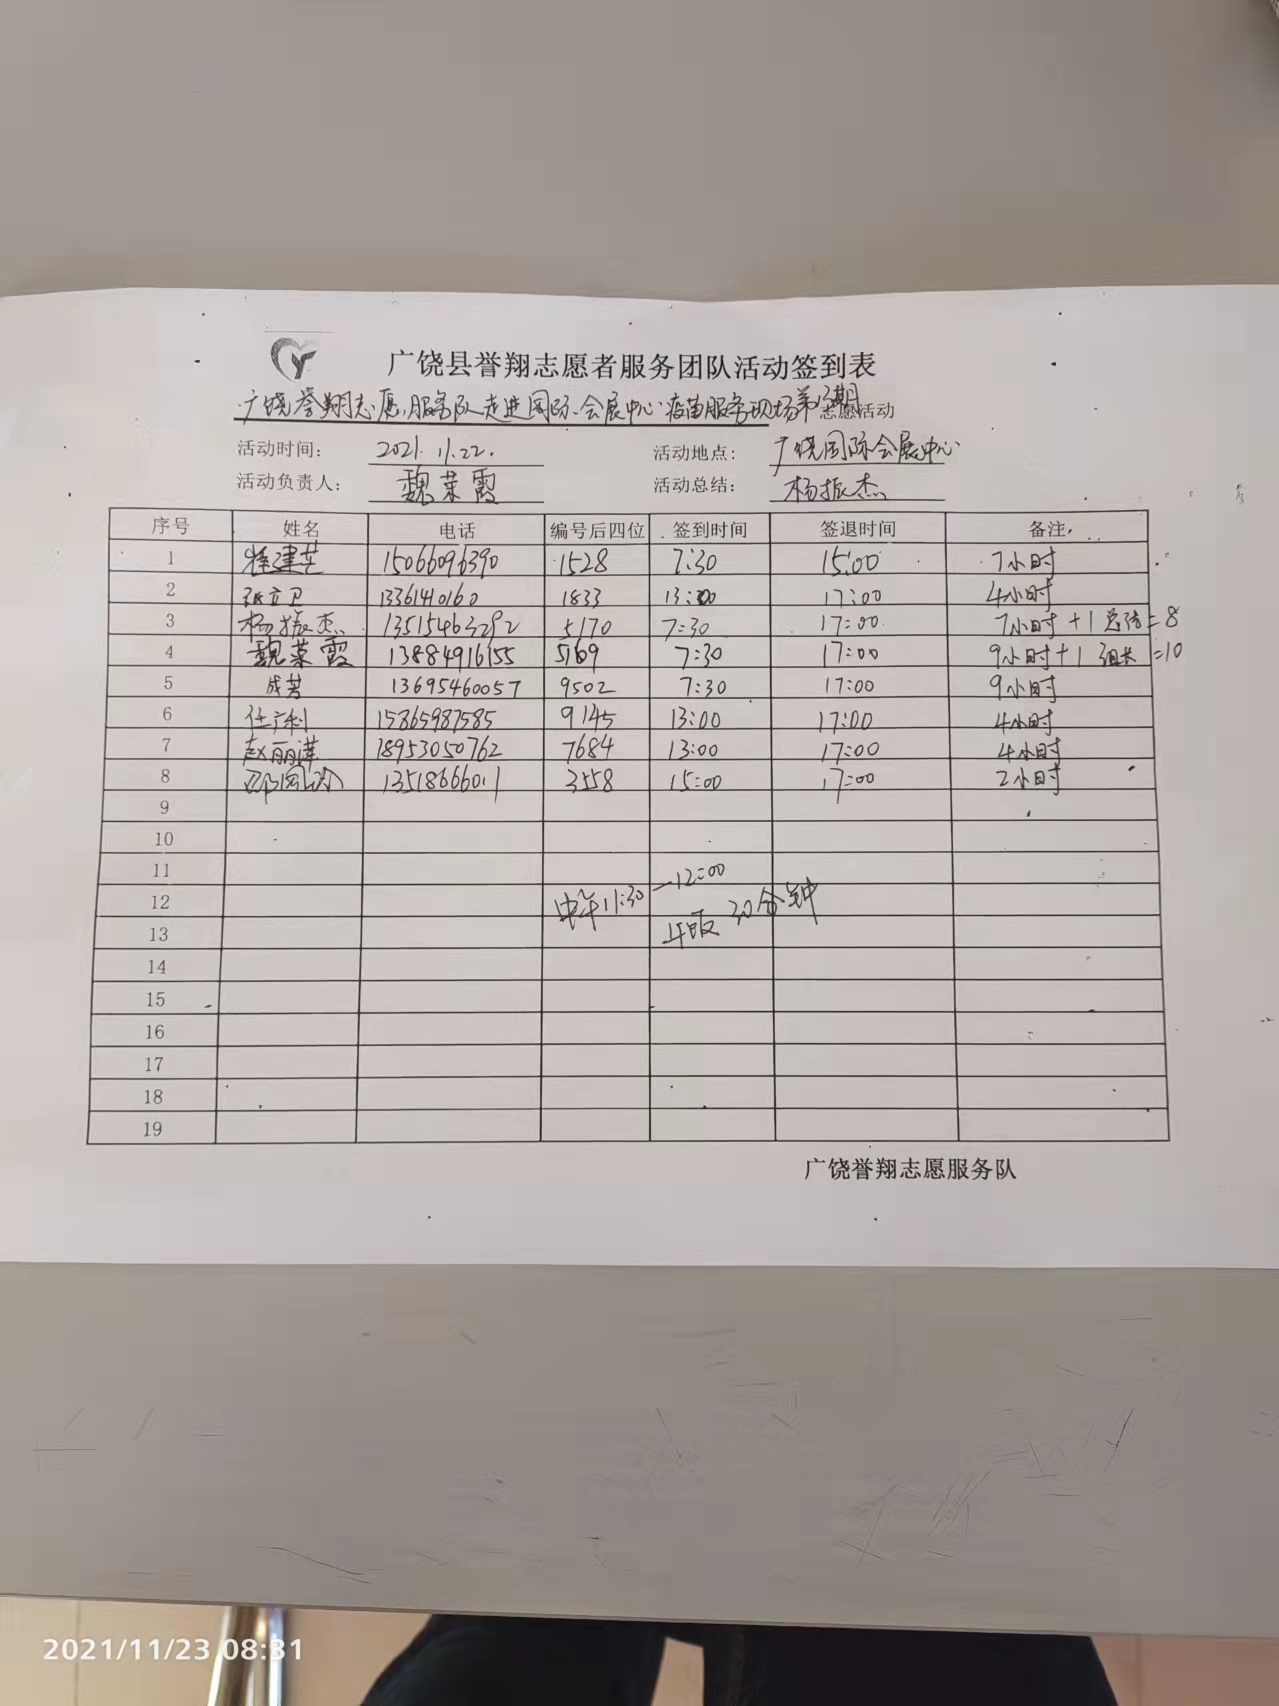 广饶县誉翔志愿者服务团队活动签到表
广饶誉翔志愿服务队走进国际会展中心疫苗服务现场第13期志愿活动
活动时间： 2021.11.22. 活动地点： 广饶国际会展中心
活动负责人： 魏荣霞 活动总结： 杨振杰
序号 姓名 电话 编号后四位 签到时间 签退时间 备注
1 建芝 15066096390 1528 7:30 15:00 7小时
2 张立卫 13361410160 1833 13:00 17:00 4小时
3 杨振杰 13515463292 5170 7:30 17:00 7小时+1总结=8
4 魏荣霞 13884916155 5169 7:30 17:00 9小时+1组长=10
5 成芳 13695460057 9502 7:30 17:00 9小时
6 任广利 15865987585 9145 13:00 17:00 4小时
7 赵丽萍 18953050762 7684 13:00 17:00 4小时
8 13518666011 3558 15:00 17:00 2小时
9
10
11
12
13
14
15
16
17
18
19
中午11:30—12:00
午饭30分钟
广饶誉翔志愿服务队
2021/11/23 08:31